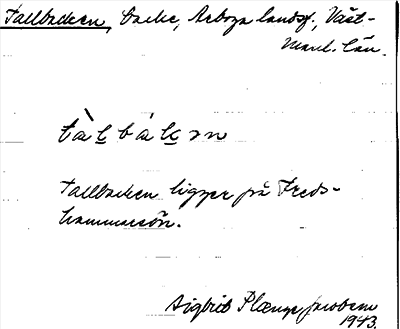 Tallbacken, backe, Arboga landsf., Väst-
manl. län.
tàl bákən
Tallbacken ligger på Freds-
hammarsön.
Sigbrit Plænge Jacobson
1943.